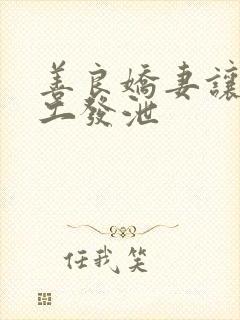 善良嬌妻讓
工發泄
任我笑